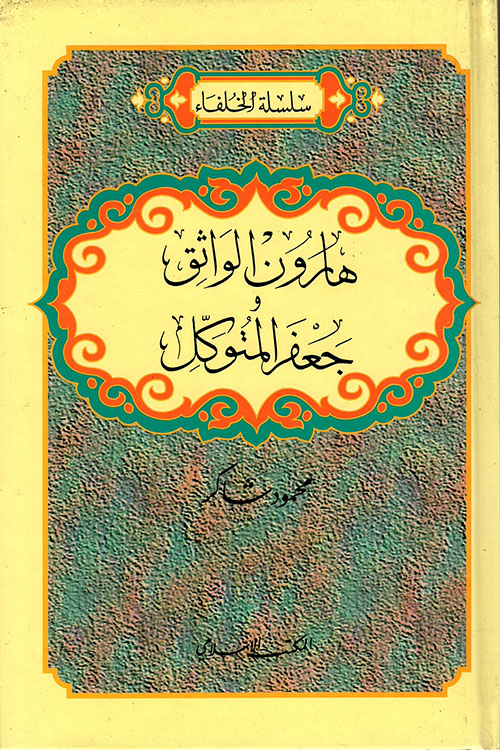 سلسلة الخلفاء
هارُون الوَاثِق
و
جَعْفَر المتَوكِّل
محمود شاكر
المكتب الإسلامي